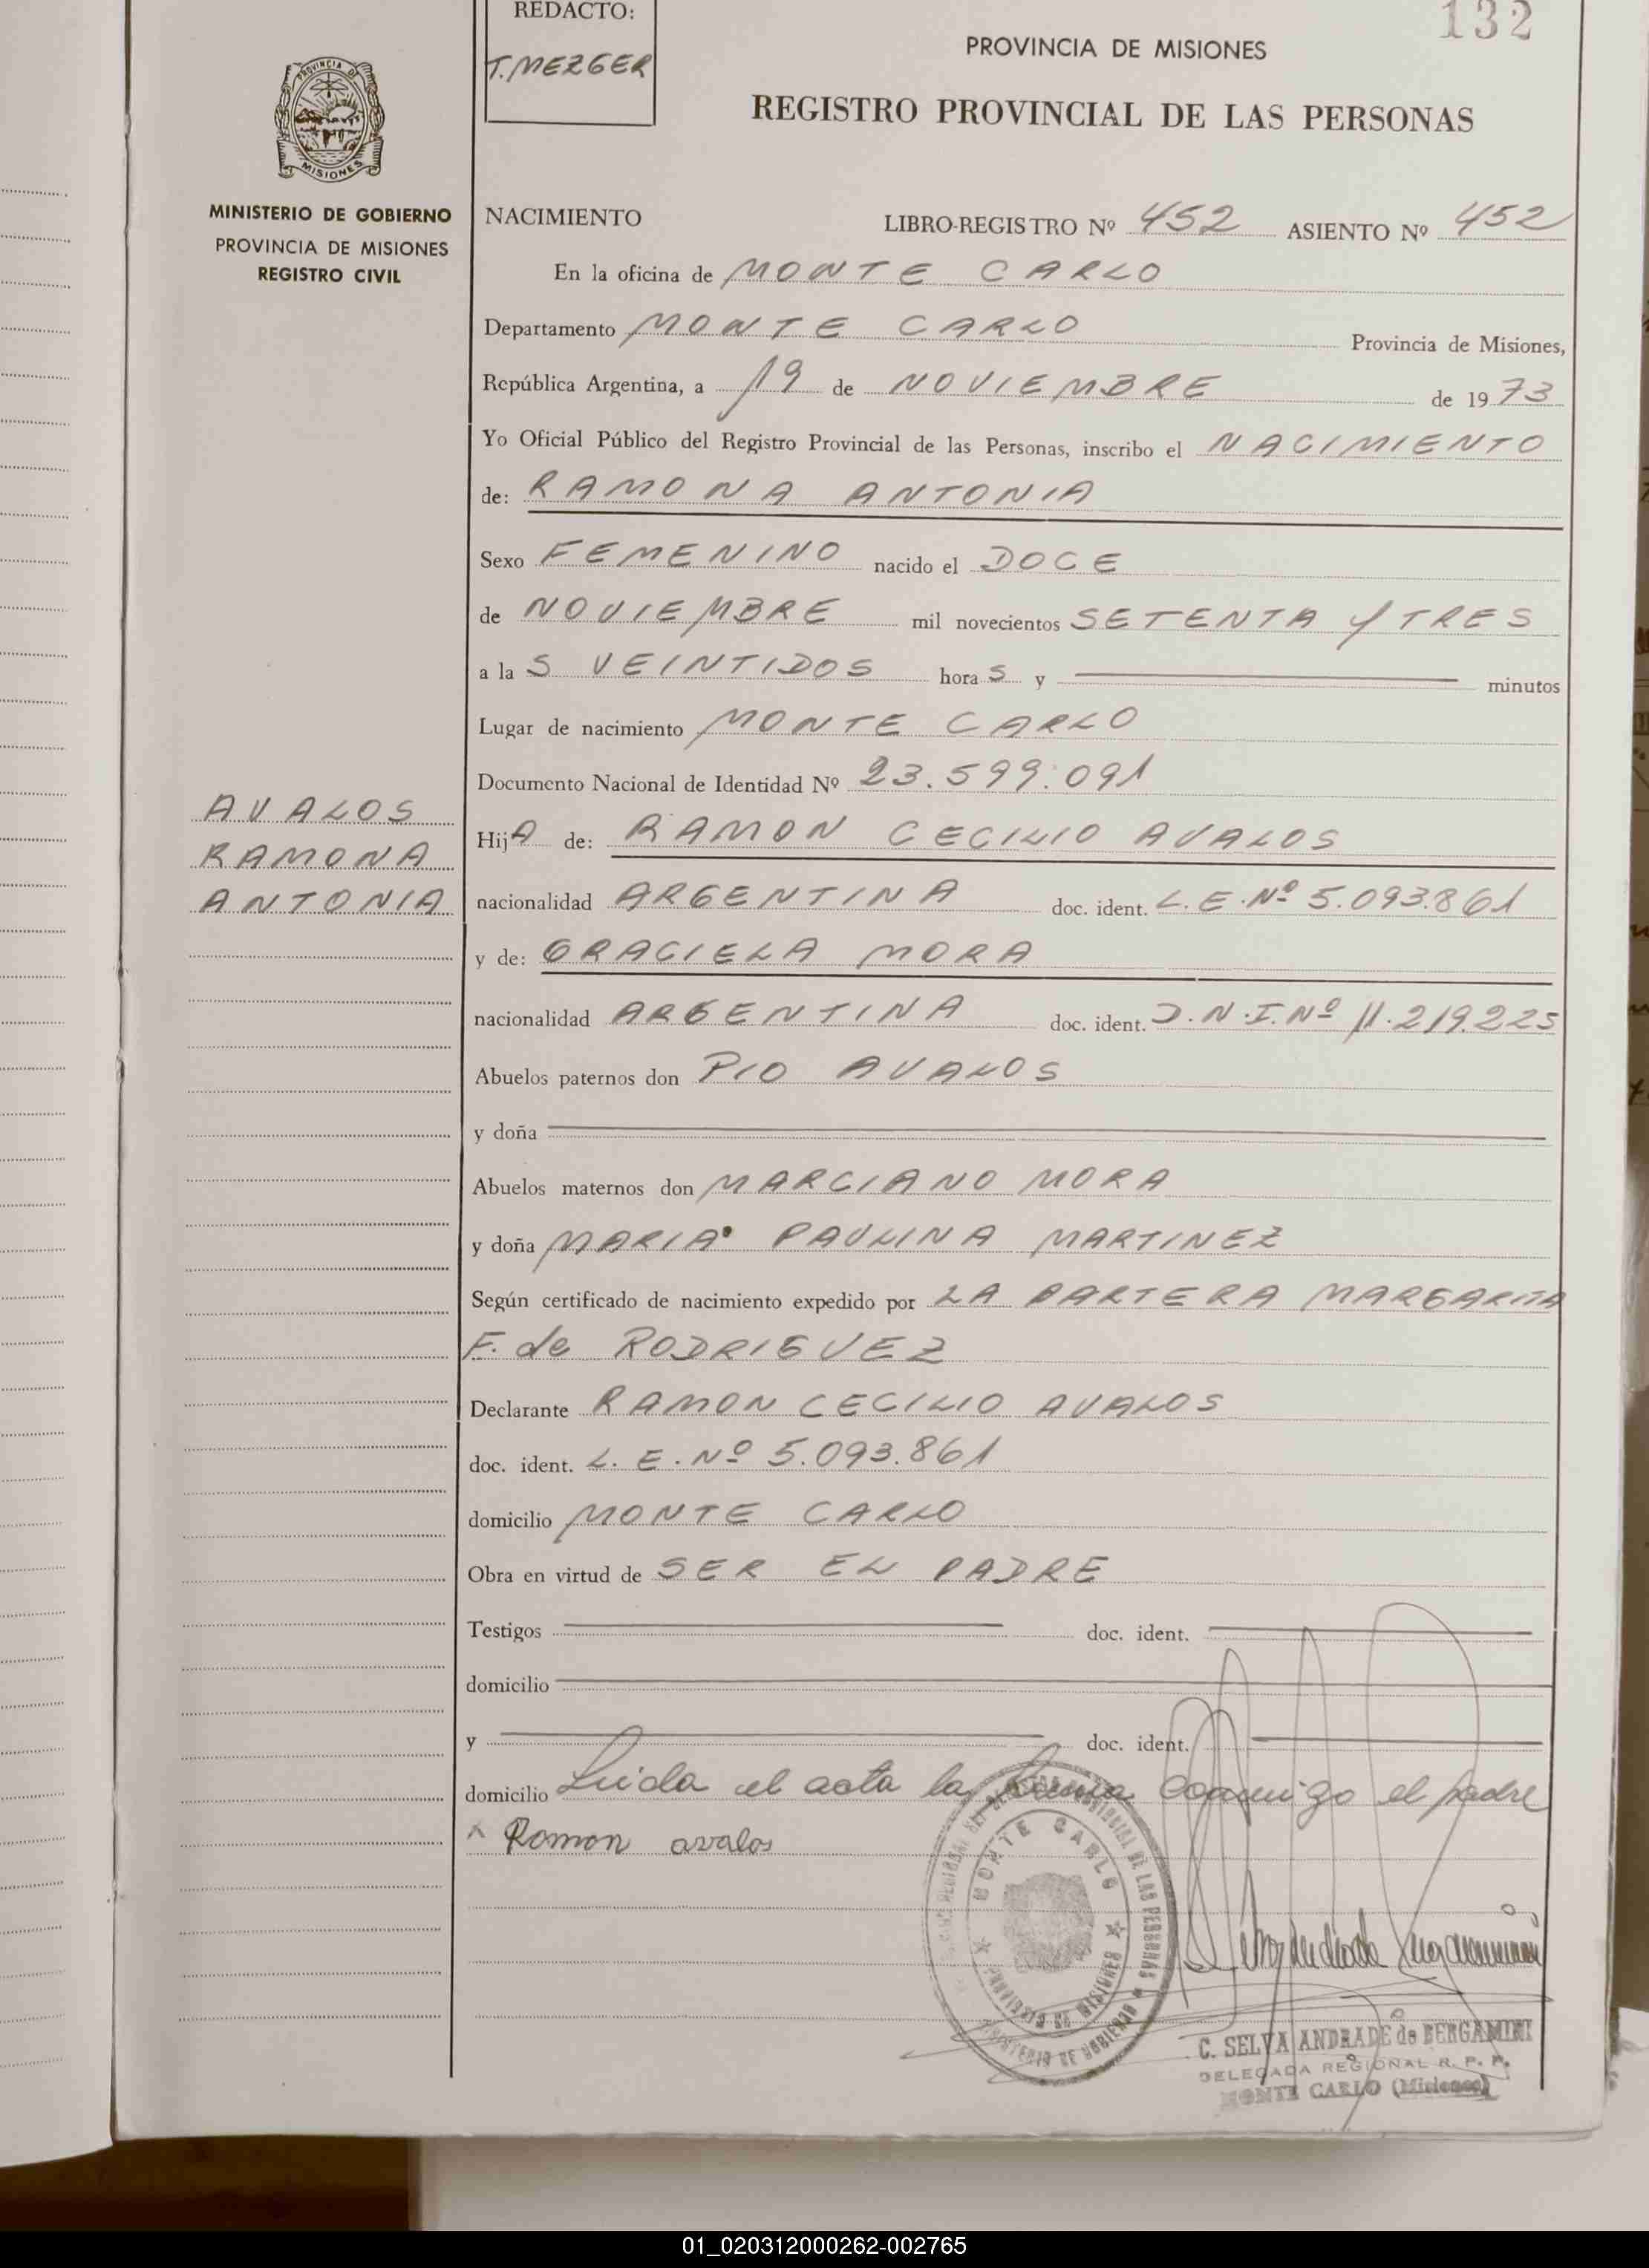 REDACTO:
T. MEZGER
132
PROVINCIA DE MISIONES
REGISTRO PROVINCIAL DE LAS PERSONAS
PROVINCIA DE
MISIONES
MINISTERIO DE GOBIERNO
PROVINCIA DE MISIONES
REGISTRO CIVIL
NACIMIENTO LIBRO-REGISTRO Nº 452 ASIENTO Nº 452
En la oficina de MONTE CARLO
Departamento MONTE CARLO Provincia de Misiones,
República Argentina, a 19 de NOVIEMBRE de 1973
Yo Oficial Público del Registro Provincial de las Personas, inscribo el NACIMIENTO
de: RAMONA ANTONIA
Sexo FEMENINO nacido el DOCE
de NOVIEMBRE mil novecientos SETENTA Y TRES
a la S VEINTIDOS hora S y minutos
Lugar de nacimiento MONTE CARLO
Documento Nacional de Identidad Nº 23.599.091
AVALOS
RAMONA
ANTONIA
HijA de: RAMON CECILIO AVALOS
nacionalidad ARGENTINA doc. ident. L.E.Nº 5.093.861
y de: GRACIELA MORA
nacionalidad ARGENTINA doc. ident. D.N.I.Nº 11.219.225
Abuelos paternos don PIO AVALOS
y doña
Abuelos maternos don MARCIANO MORA
y doña MARIA PAULINA MARTINEZ
Según certificado de nacimiento expedido por LA PARTERA MARGARITA
F. de RODRIGUEZ
Declarante RAMON CECILIO AVALOS
doc. ident. L.E.Nº 5.093.861
domicilio MONTE CARLO
Obra en virtud de SER EL PADRE
Testigos doc. ident.
domicilio
y doc. ident.
domicilio Leida el acta la firma conmigo el padre
Ramon avalos
MONTE CARLO
PROVINCIA DE MISIONES
MINISTERIO DE GOBIERNO
C. SELVA ANDRADE de BERGAMINI
DELEGADA REGIONAL R. P. P.
MONTE CARLO (Misiones)
01_020312000262-002765